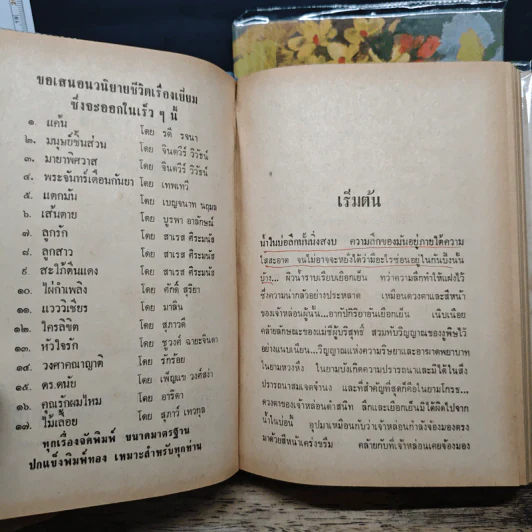 ขอเสนอนวนิยายชีวิตเรื่องเยี่ยม
ซึ่งจะออกในเร็ว ๆ นี้
๑. แค้น โดย รตี รจนา
๒. มนุษย์ชิ้นส่วน โดย จินตวีร์ วิวัธน์
๓. มายาพิศวาส โดย จินตวีร์ วิวัธน์
๔. พระจันทร์เดือนกันยา โดย เทพเทวี
๕. แดกมัน โดย เบญจนาท นฤมล
๖. เส้นตาย โดย บูรพา อาลักษณ์
๗. ลูกรัก โดย สาเรส ศิระมนัส
๘. ลูกสาว โดย สาเรส ศิระมนัส
๙. สะใภ้ดินแดง โดย สาเรส ศิระมนัส
๑๐. ไผ่กำเพลิง โดย ศักดิ์ สุริยา
๑๑. แวววิเชียร โดย มาลิน
๑๒. ใครลิขิต โดย สุภาวดี
๑๓. หัวใจรัก โดย ชูวงศ์ ฉายะจินดา
๑๔. วงศาคณาญาติ โดย รักร้อย
๑๕. ดร.ดนัย โดย เพ็ญแข วงศ์สง่า
๑๖. คุณรักผมไหม โดย อาริตา
๑๗. ไม้เลื้อย โดย สุภาว์ เทวกุล
ทุกเรื่องจัดพิมพ์ ขนาดมาตรฐาน
ปกแข็งพิมพ์ทอง เหมาะสำหรับทุกท่าน
เริ่มต้น
น้ำในบ่อลึกกี้นิ่งสงบ ความลึกของมันอยู่ภายใต้ความ
ใสสะอาด จนไม่อาจจะหยั่งได้ว่ามีอะไรซ่อนอยู่ในก้นบึ้งนั้น
บ้าง... ผิวน้ำราบเรียบเยือกเย็น ทว่าความลึกทำให้แฝงไว้
ซึ่งความน่ากลัวอย่างประหลาด เหมือนดวงตาและสีหน้า
ของเจ้าหล่อนผู้นั้น...อากัปกิริยาอันเยือกเย็น เนิบเนือย
คล้ายลักษณะของแม่ชีผู้บริสุทธิ์ สวมทับวิญญาณของงูพิษไว้
อย่างแนบเนียน...วิญญาณแห่งความริษยาและอาฆาตพยาบาท
ในยามหวงหึง ในยามบังเกิดความปรารถนาและมิได้ในสิ่ง
ปรารถนาสมเจตจำนง และที่สำคัญที่สุดก็คือในยามโกรธ...
ดวงตาของเจ้าหล่อนดำสนิท ลึกและเยือกเย็นมิได้ผิดไปจาก
น้ำในบ่อนี้ อุปมาเหมือนกับว่าเจ้าหล่อนกำลังจ้องมองตรง
มาด้วยสีหน้าเคร่งขรึม คล้ายกับที่เจ้าหล่อนเคยจ้องมอง